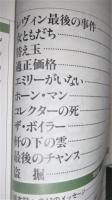 レヴィン最後の事件
女ともだち
替え玉
適正価格
エミリーがいない
ホーン・マン
コレクターの死
ザ・ボイラー
軒下の雲
最後のチャンス
盗掘
のメッセージ